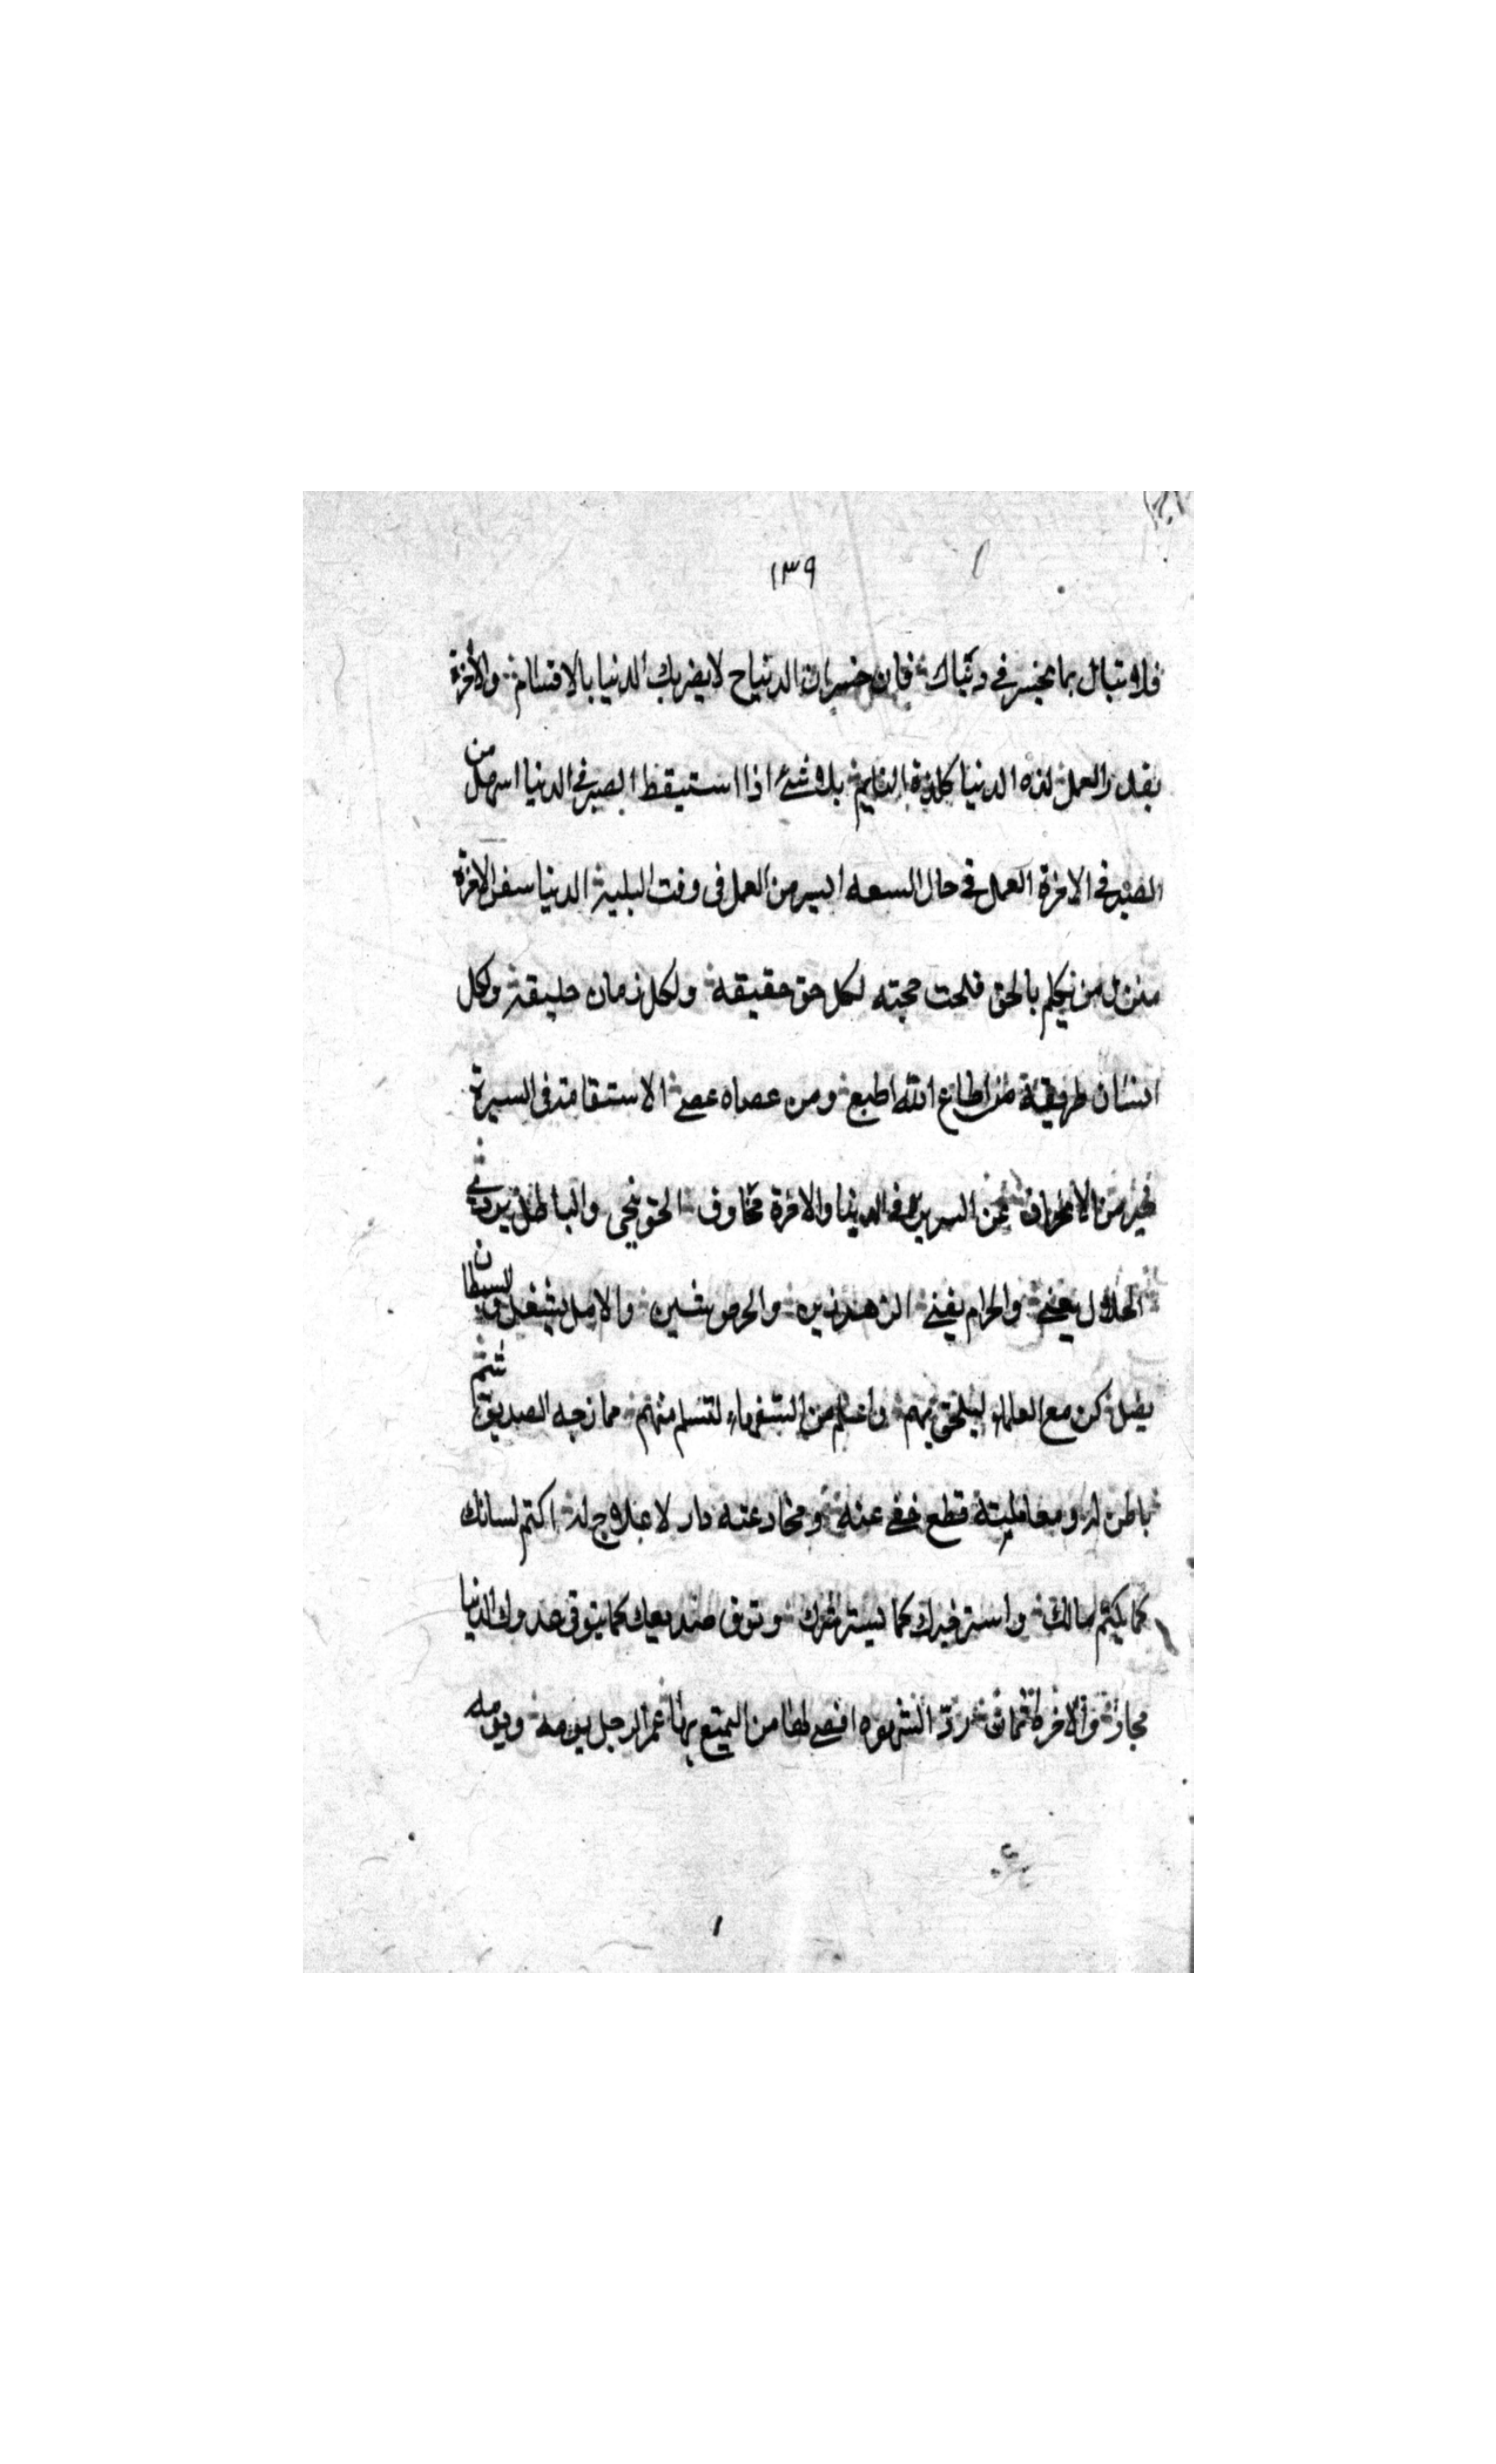 ١٣٩
فلا تبال بما يخسر في دنياك فان خسران الدنيا ح لا يضر بك الدنيا بالاقسام والاخرة
بقدر العمل لذة الدنيا كلذة النايم بلا شئ اذا استيقظ الصبر في الدنيا اسهل من
الصبر في الاخرة العمل في حال السعه ايسر من العمل في وقت البلية الدنيا سفر الاخرة
منزل من تكلم بالحق فلحت حجته لكل حق حقيقه ولكل زمان خليقة ولكل
انسان طريقة من اطاع الله اطيع ومن عصاه عصى الاستقامة في السيرة
خير من الانحراف في الدنيا والاخرة مخاوف الحق ينجى والباطل يردى
الحلال يغنى والحرام يفنى الزهد يزين والحرص يشين والامل يشغل والشيطان
يضل كن مع العلماء ليلحق بهم واسلم من السفهاء لتسلم منهم ممازجه الصديق
باطن له ومعاملته قطع عنه ومخادعته دار لا علاج له اكتم لسانك
كما يكتم مالك واستر خيرك كما يستر شرك وتوق صديقك كما يتوقى عدوك الدنيا
مجاز والاخرة ردّ الشهوه اقصى لها من التمتع بها عمر الرجل يومه وقومه